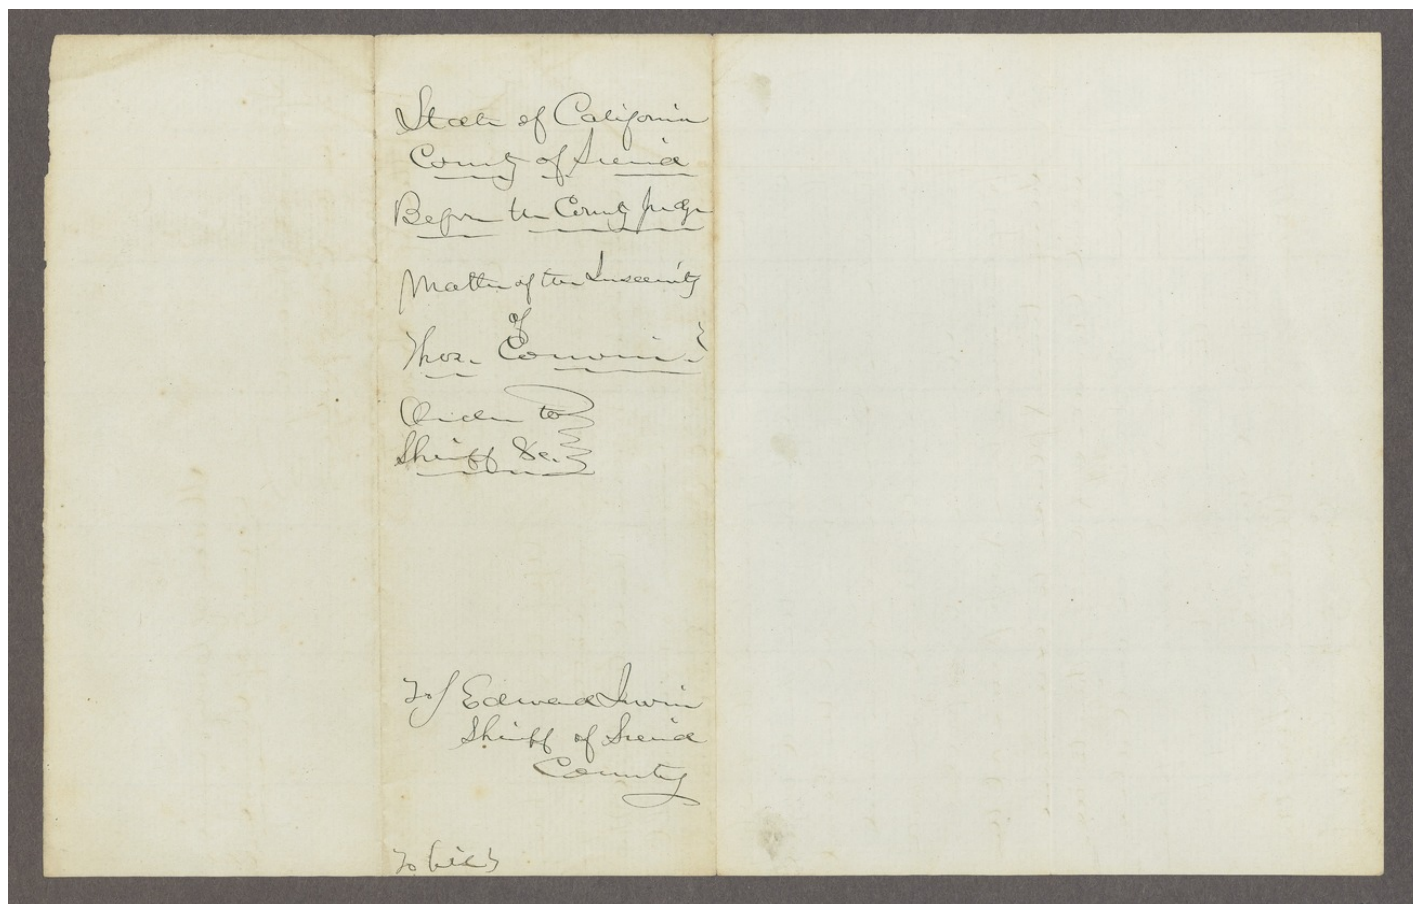 State of California
County of Sierra
Before the County Judge
Matter of the Insanity
of
Thos. Conwin.
Order to
Sheriff &c.
To/ Edward Irwin
Sheriff of Sierra
County
To